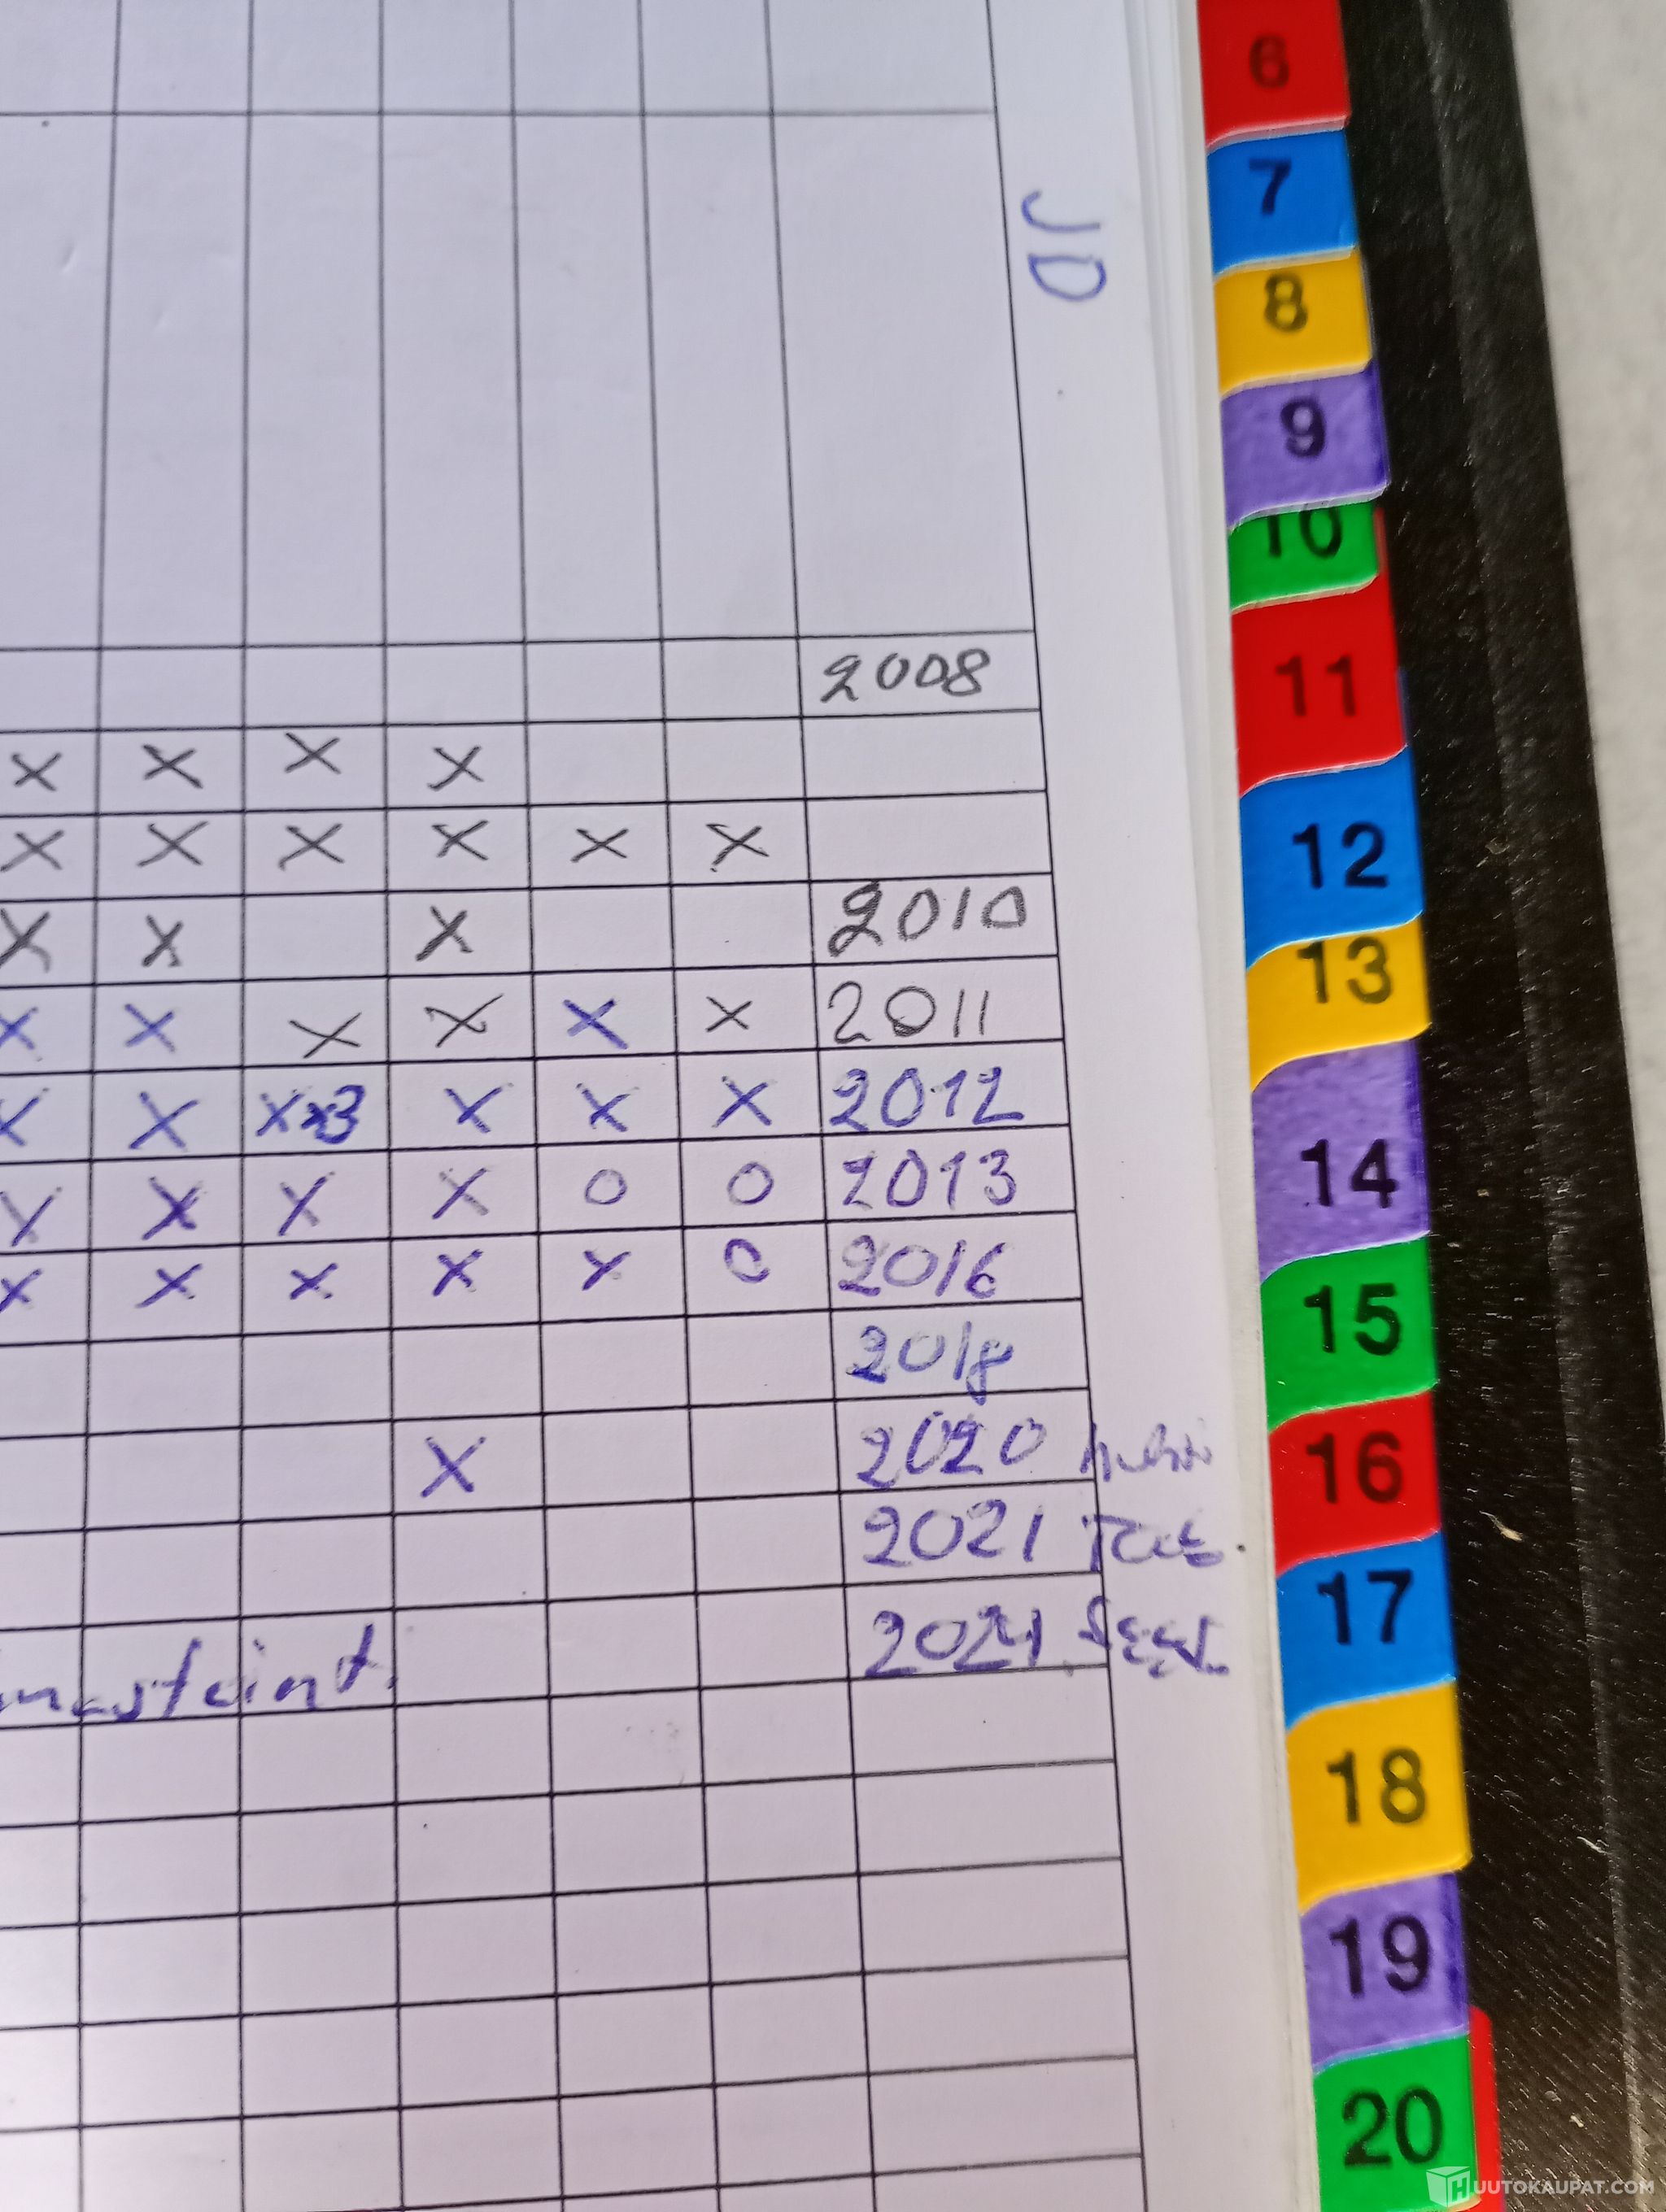 JD
2008
X X X X
X X X X X X
X X X 2010
X X X X X X 2011
X X Xx3 X X X 2012
X X X X O O 2013
X X X X X O 2016
2018
X 2020
2021
2021
6
7
8
9
10
11
12
13
14
15
16
17
18
19
20
HUUTOKAUPAT.COM